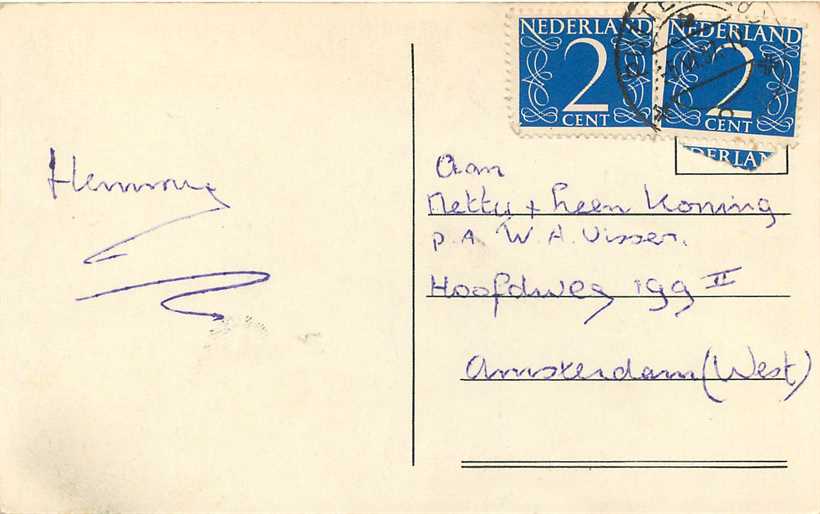 NEDERLAND
2
CENT
NEDERLAND
2
CENT
DERLAN
Aan
Netty + Leen Koning
p.A. W.A. Visser.
Hoofdweg 199 II
Amsterdam (West)